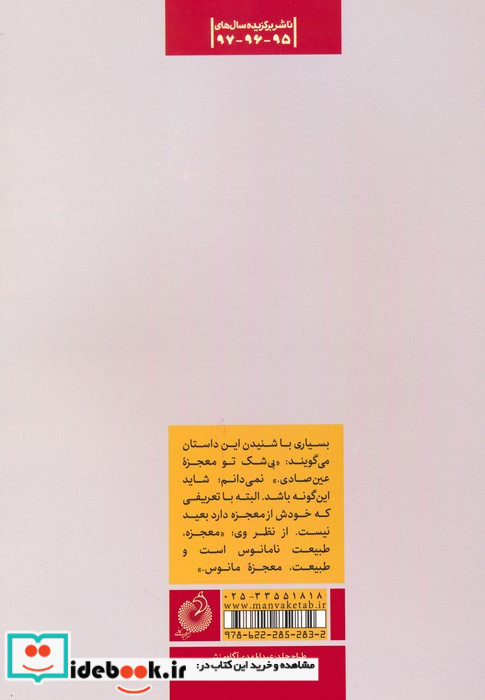 ناشر برگزیده سال‌های
۹۵-۹۶-۹۷
بسیاری با شنیدن این داستان
می‌گویند: «بی‌شک تو معجزهٔ
عین‌صادی.» نمی‌دانم؛ شاید
این‌گونه باشد. البته با تعریفی
که خودش از معجزه دارد بعید
نیست. از نظر وی: «معجزه،
طبیعت نامانوس است و
طبیعت، معجزهٔ مانوس.»
۰۲۵-۳۳۵۵۱۸۱۸
www.manvaketab.ir
978-622-285-283-2
idebook.ir
مشاهده و خرید این کتاب در: